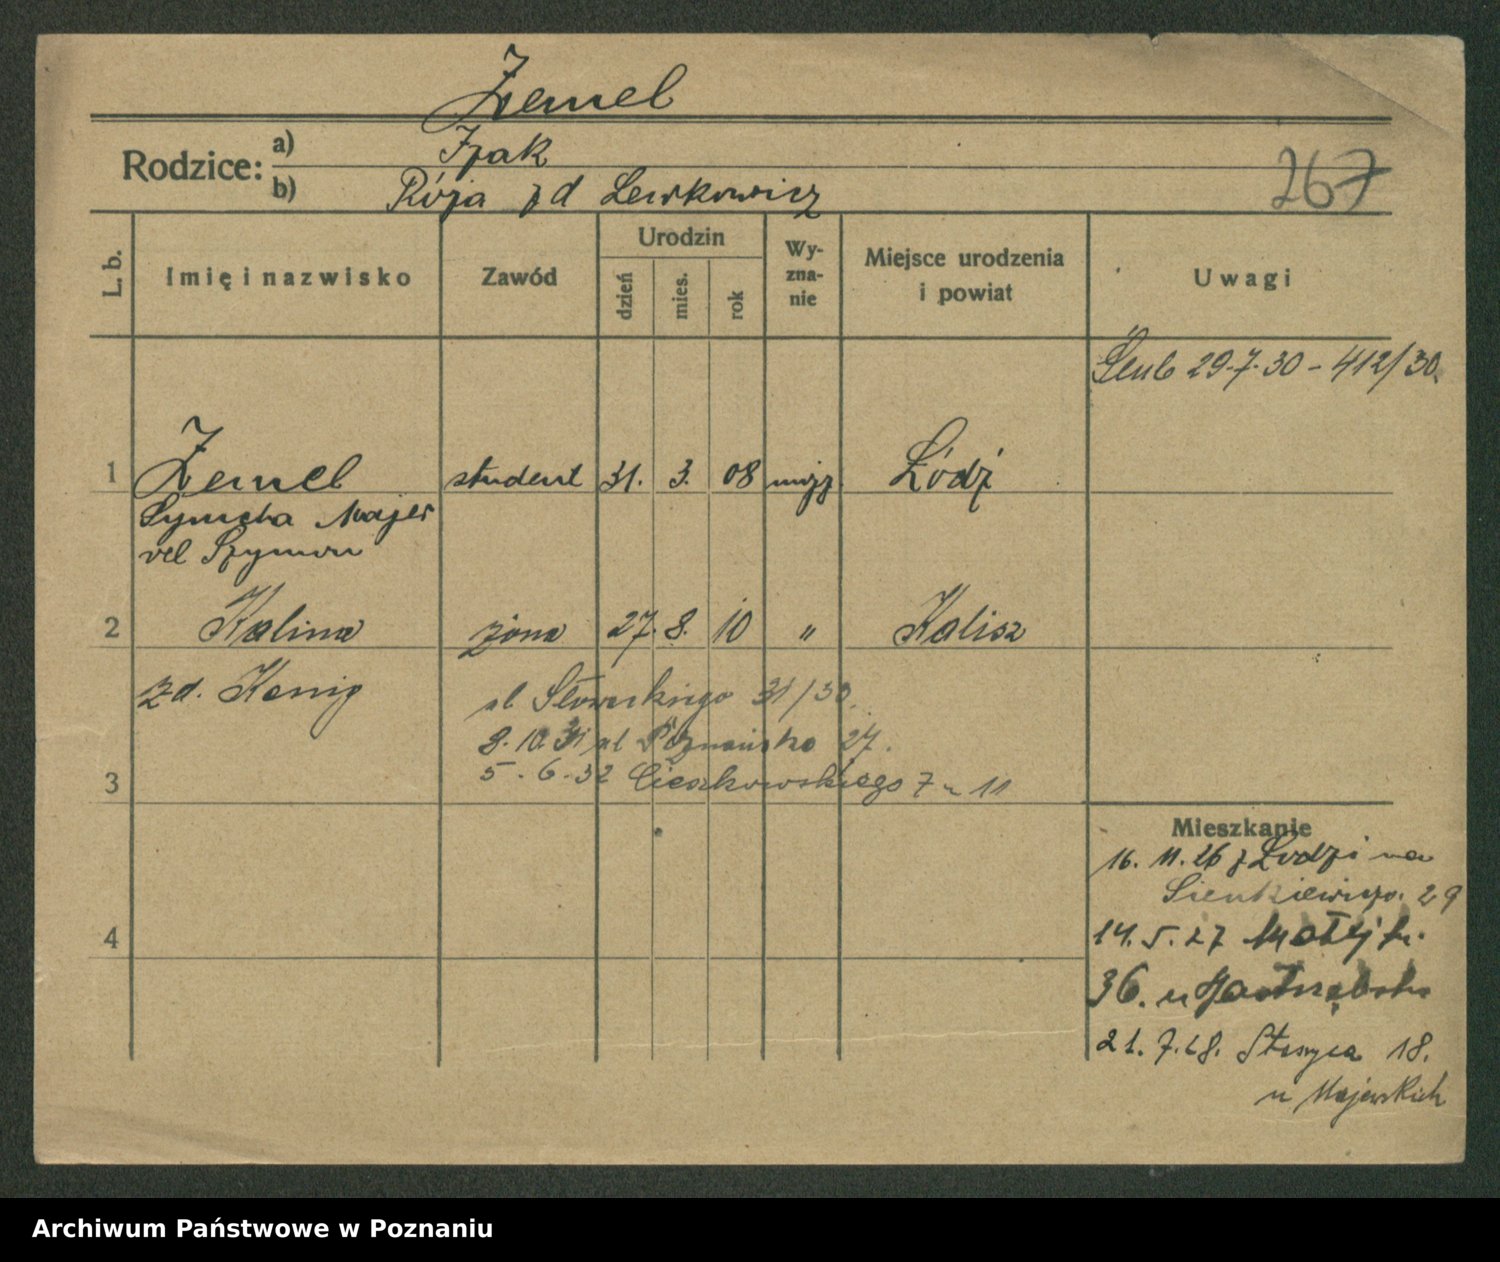 Zemel
Rodzice: a) Izak
b) Róża zd Lewkowicz
267
L. b.
Imię i nazwisko
Zawód
Urodzin
dzień
mies.
rok
Wy-
zna-
nie
Miejsce urodzenia
i powiat
Uwagi
Ślub 29.7.30 - 412/30.
1 Zemel student 31. 3. 08 mojż. Łódź
Symcha Majer
vel Szymon
2 Kalina żona 27. 8. 10 " Kalisz
zd. Kenig
ul Słowackiego 31/30.
8.10.31 ul Poznańska 27.
5.6.32 Cieszkowskiego 7 u 11
3
Mieszkanie
16. 11. 26 z Łodzi na
Sienkiewicza. 29
4
14. 5. 27 Matejki.
36. u
21. 7. 28. 18.
u Majewskich
Archiwum Państwowe w Poznaniu